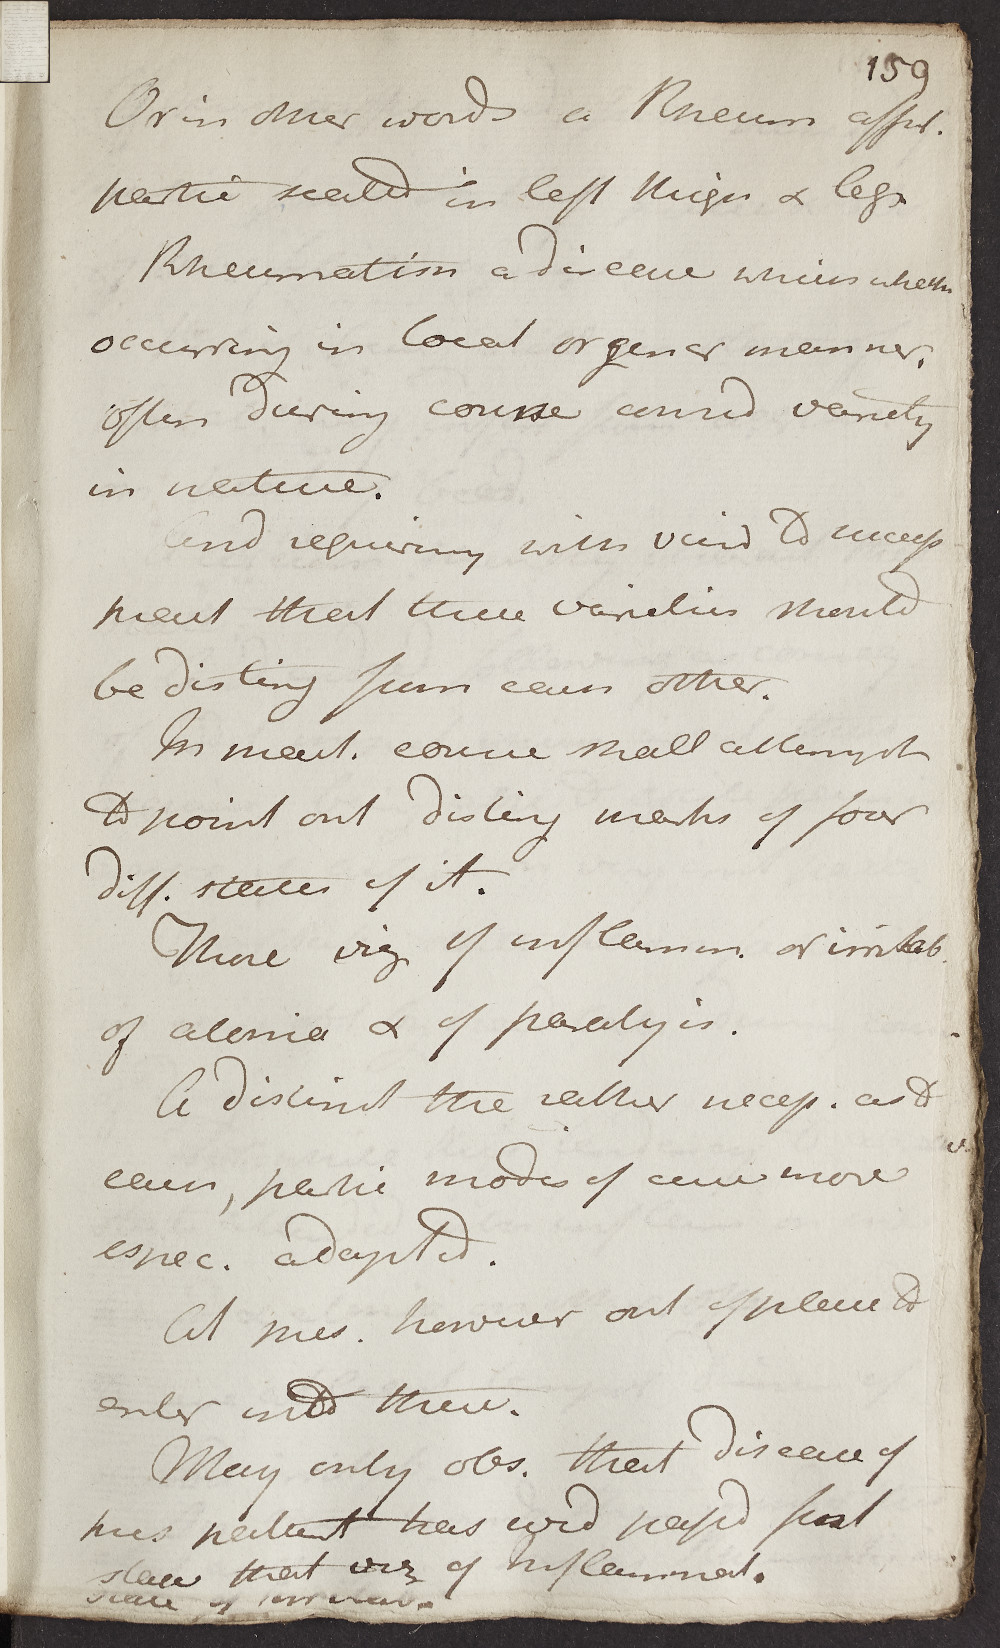 159
Or in other words a Rheum affect.
partic seated in left thigh & leg
Rheumatism a disease which wheth
occurring in local or gener manner.
often during course variety
in nature.
And requiring with view to
that these varieties should
be disting from each other.
In course shall attempt
to point out disting marks of four
diff. states of it.
Those viz of inflamm. or irritab.
of atonia & of paralysis.
A distinct the rather necess. as to
each, partic modes of cure more
espec. adapted.
At pres. however out of place to
enter into these.
May only obs. that disease of
this patient has passed first
state that viz of Inflammat.
state of